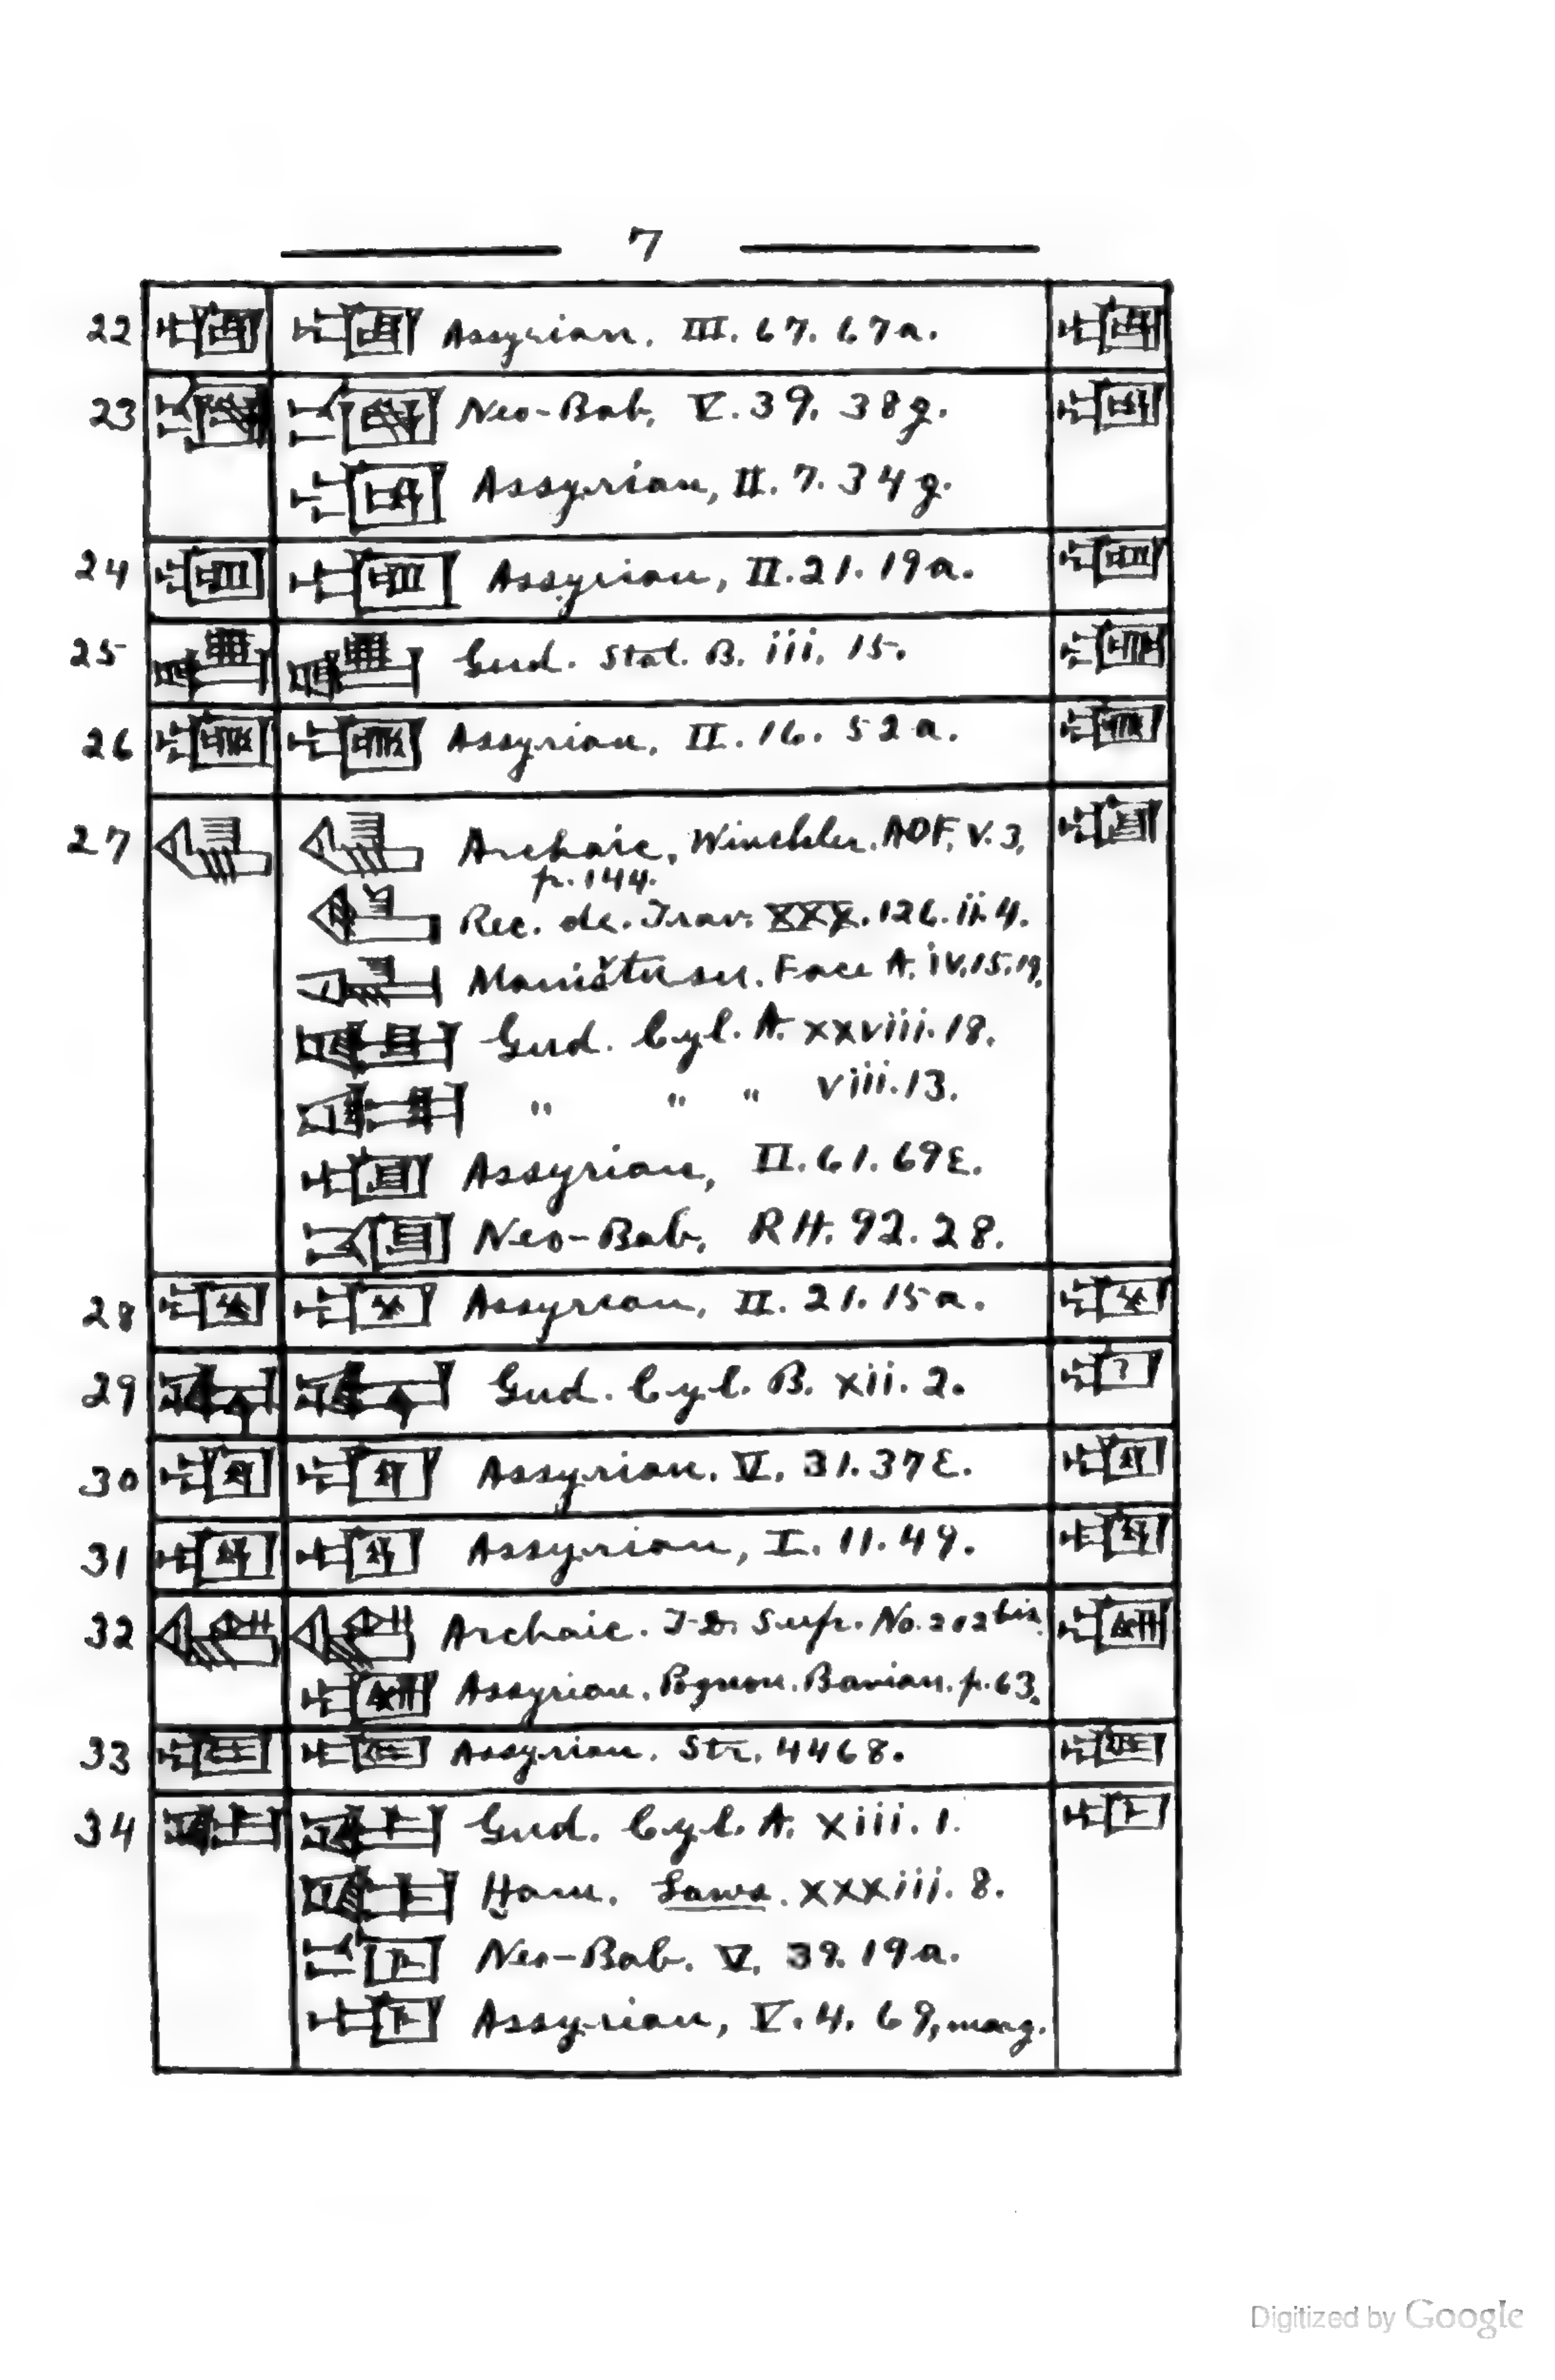 7
22 Assyrian. III. 67. 67a.
23 Neo-Bab. V. 39. 38g.
Assyrian, II. 7. 34g.
24 Assyrian, II. 21. 19a.
25 Gud. Stat. B. iii. 15.
26 Assyrian. II. 16. 52a.
27 Archaic, Winckler. AOF, V. 3,
p. 144.
Rec. de. Trav. XXX. 126. ii. 4.
Maništusu. Face A. iv. 15. 19.
Gud. Cyl. A. xxviii. 18.
" " " viii. 13.
Assyrian, II. 61. 69ε.
Neo-Bab. RH. 92. 28.
28 Assyrian, II. 21. 15a.
29 Gud. Cyl. B. xii. 2.
?
30 Assyrian. V. 31. 37ε.
31 Assyrian, I. 11. 49.
32 Archaic. T-D. Supr. No. 202 bis.
Assyrian. Pognon. Bavian. p. 63.
33 Assyrian. Str. 4468.
34 Gud. Cyl. A. xiii. 1.
Ḫam. Laws. xxxiii. 8.
Neo-Bab. V. 39. 19a.
Assyrian, V. 4. 69, marg.
Digitized by Google